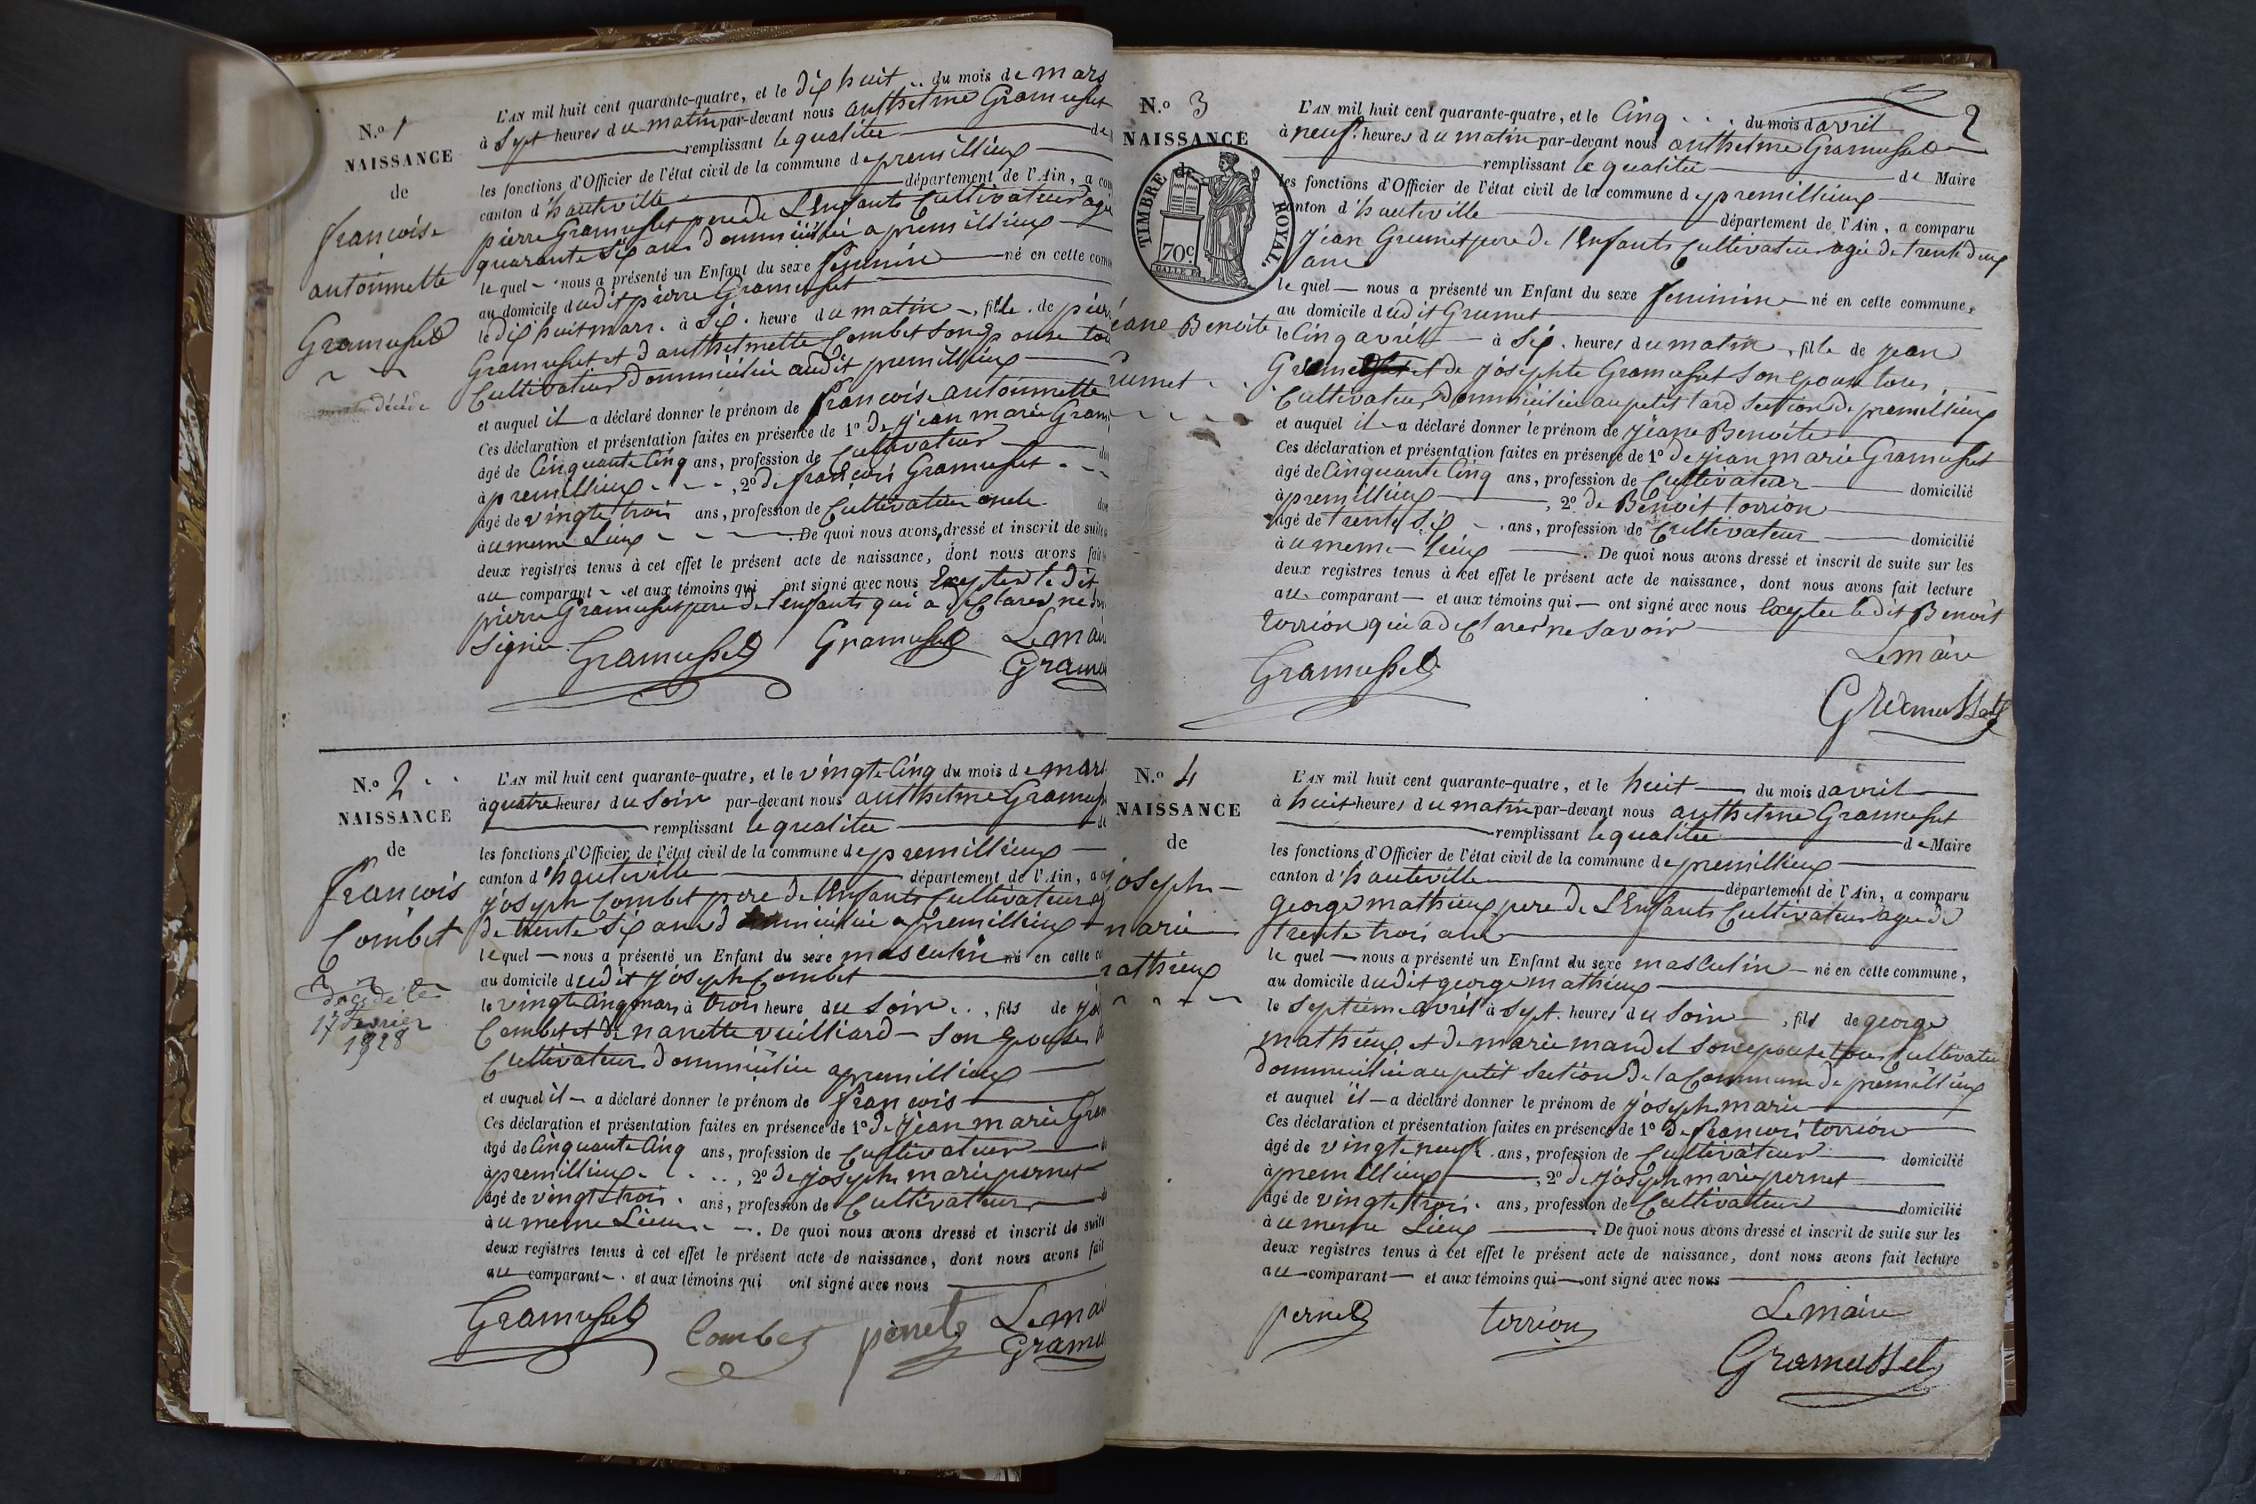 N.o 1
NAISSANCE
de
francoise
antoinnette
Gramusset
décéde
L'AN mil huit cent quarante-quatre, et le dix huit .. du mois de mars
à Sept heures du matin par-devant nous anthelme Gramusset
remplissant le qualitée de
les fonctions d'Officier de l'état civil de la commune de premillieux
canton d'hauteville département de l'Ain, a com
pierre Gramusset pere de L'Enfants Cultivateur agé
quarante Six ans dommicilié a premillieux
le quel - nous a présenté un Enfant du sexe feminin né en cette com
au domicile dudit pierre Gramusset
le dix huit mars . à Six . heure du matin -, fille . de pier
Gramusset et d anthelmette Combet son epouse tou
Cultivateur dommicilié audit premillieux
et auquel il a déclaré donner le prénom de francoise antoinnette
Ces déclaration et présentation faites en présence de 1o De jean marie Gram
âgé de Cinquante Cinq ans, profession de Cultivateur do
à premillieux - - - , 2o de francois Gramusset - - -
âgé de vingt trois ans, profession de Cultivateur oncle do
à u meme Lieux - - . De quoi nous avons dressé et inscrit de suite
deux registres tenus à cet effet le présent acte de naissance, dont nous avons fait
au comparant - et aux témoins qui ont signé avec nous Exepter le dit
pierre Gramusset pere de l'enfants qui a declarer ne
Signer. Gramusset Gramusset Le mai
Gramu
N.o 2 . .
NAISSANCE
de
francois
Combet
décédé le
17 Fevrier
1928
L'AN mil huit cent quarante-quatre, et le vingt-Cinq du mois de mars
à quatre heures du Soir par-devant nous anthelme Gramuss
remplissant le qualitée de
les fonctions d'Officier de l'état civil de la commune de premillieux
canton d'hauteville département de l'Ain, a co
joseph Combet pere de l'Enfants Cultivateur ag
de trente Six ans dommicilié a premillieux
le quel — nous a présenté un Enfant du sexe masculin né en cette co
au domicile dudit joseph Combet
le vingt Cinq mars à trois heure du Soir . . , fils de jos
Combet et de nanette vuilliard - Son epouse
Cultivateur dommicilié a premillieux
et auquel il - a déclaré donner le prénom de francois
Ces déclaration et présentation faites en présence de 1o De jean marie Gram
âgé de Cinquante Cinq ans, profession de Cultivateur
à premillieux . . . . , 2o de joseph marie pernet
âgé de vingt trois . ans, profession de Cultivateur
à u meme Lieux - . De quoi nous avons dressé et inscrit de suite
deux registres tenus à cet effet le présent acte de naissance, dont nous avons fait
au comparant - . et aux témoins qui ont signé avec nous
Gramusset Combet pernet Le mai
Gramu
2
N.o 3
NAISSANCE
de
TIMBRE ROYAL.
70c.
jeane Benoite
Grumet . .
L'AN mil huit cent quarante-quatre, et le Cinq . . . du mois d avril
à neuf . heures du matin par-devant nous anthelme Gramusset
remplissant le qualitée de Maire
les fonctions d'Officier de l'état civil de la commune de premillieux
canton d'hauteville département de l'Ain, a comparu
jean Grumet pere de l'Enfants Cultivateur agée de trente deux
ans
le quel — nous a présenté un Enfant du sexe feminin né en cette commune,
au domicile dudit Grumet
le Cinq avril — à Six . heures du matin , fille de jean
et de josephte Gramusset Son epouse tous
Cultivateur dommicilié au petit tard section de premillieux
et auquel il - a déclaré donner le prénom de jeane Benoite
Ces déclaration et présentation faites en présence de 1o De jean marie Gramusset
âgé de Cinquante Cinq ans, profession de Cultivateur domicilié
à premillieux , 2o de Benoit torrion
âgé de trente Six - . ans, profession de Cultivateur domicilié
à u meme - Lieux . De quoi nous avons dressé et inscrit de suite sur les
deux registres tenus à cet effet le présent acte de naissance, dont nous avons fait lecture
au comparant — et aux témoins qui — ont signé avec nous Exeptée le dit Benoit
torrion qui a declarer ne Savoir
Gramusset Le maire
Gramusset
N.o 4
NAISSANCE
de
joseph
marie
mathieux
L'AN mil huit cent quarante-quatre, et le huit — du mois d avril
à huit heures du matin par-devant nous anthelme Gramusset
remplissant le qualitée de Maire
les fonctions d'Officier de l'état civil de la commune de premillieux
canton d'hauteville département de l'Ain, a comparu
george mathieux pere de L'Enfants Cultivateur agée de
trente trois ans
le quel — nous a présenté un Enfant du sexe masculin — né en cette commune,
au domicile dudit george mathieux
le Septieme avril à Sept . heures du Soir , fils de george
mathieux et de marie mandet Son epouse tous Cultivateur
Dommicilié au petit Section de la Commune de premillieux
et auquel il — a déclaré donner le prénom de joseph marie
Ces déclaration et présentation faites en présence de 1o De francois torrion
âgé de vingt neuf . ans, profession de Cultivateur domicilié
à premillieux , 2o de joseph marie pernet
âgé de vingt trois . ans, profession de Cultivateur domicilié
à u meme Lieux . De quoi nous avons dressé et inscrit de suite sur les
deux registres tenus à cet effet le présent acte de naissance, dont nous avons fait lecture
au comparant — et aux témoins qui — ont signé avec nous
pernet torrion Le maire
Gramusset